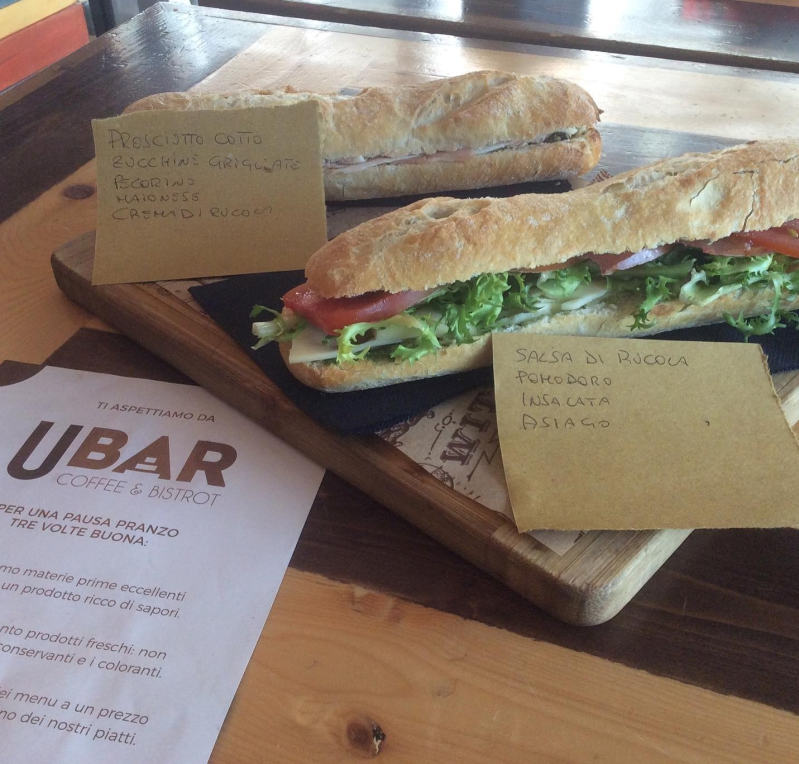 PROSCIUTTO COTTO
ZUCCHINE GRIGLIATE
PECORINO
MAIONESE
CREMA DI RUCOLA
SALSA DI RUCOLA
POMODORO
INSALATA
ASIAGO
TI ASPETTIAMO DA
UBAR
COFFEE & BISTROT
PER UNA PAUSA PRANZO
TRE VOLTE BUONA:
mo materie prime eccellenti
un prodotto ricco di sapori.
nto prodotti freschi: non
conservanti e i coloranti.
ei menu a un prezzo
no dei nostri piatti.